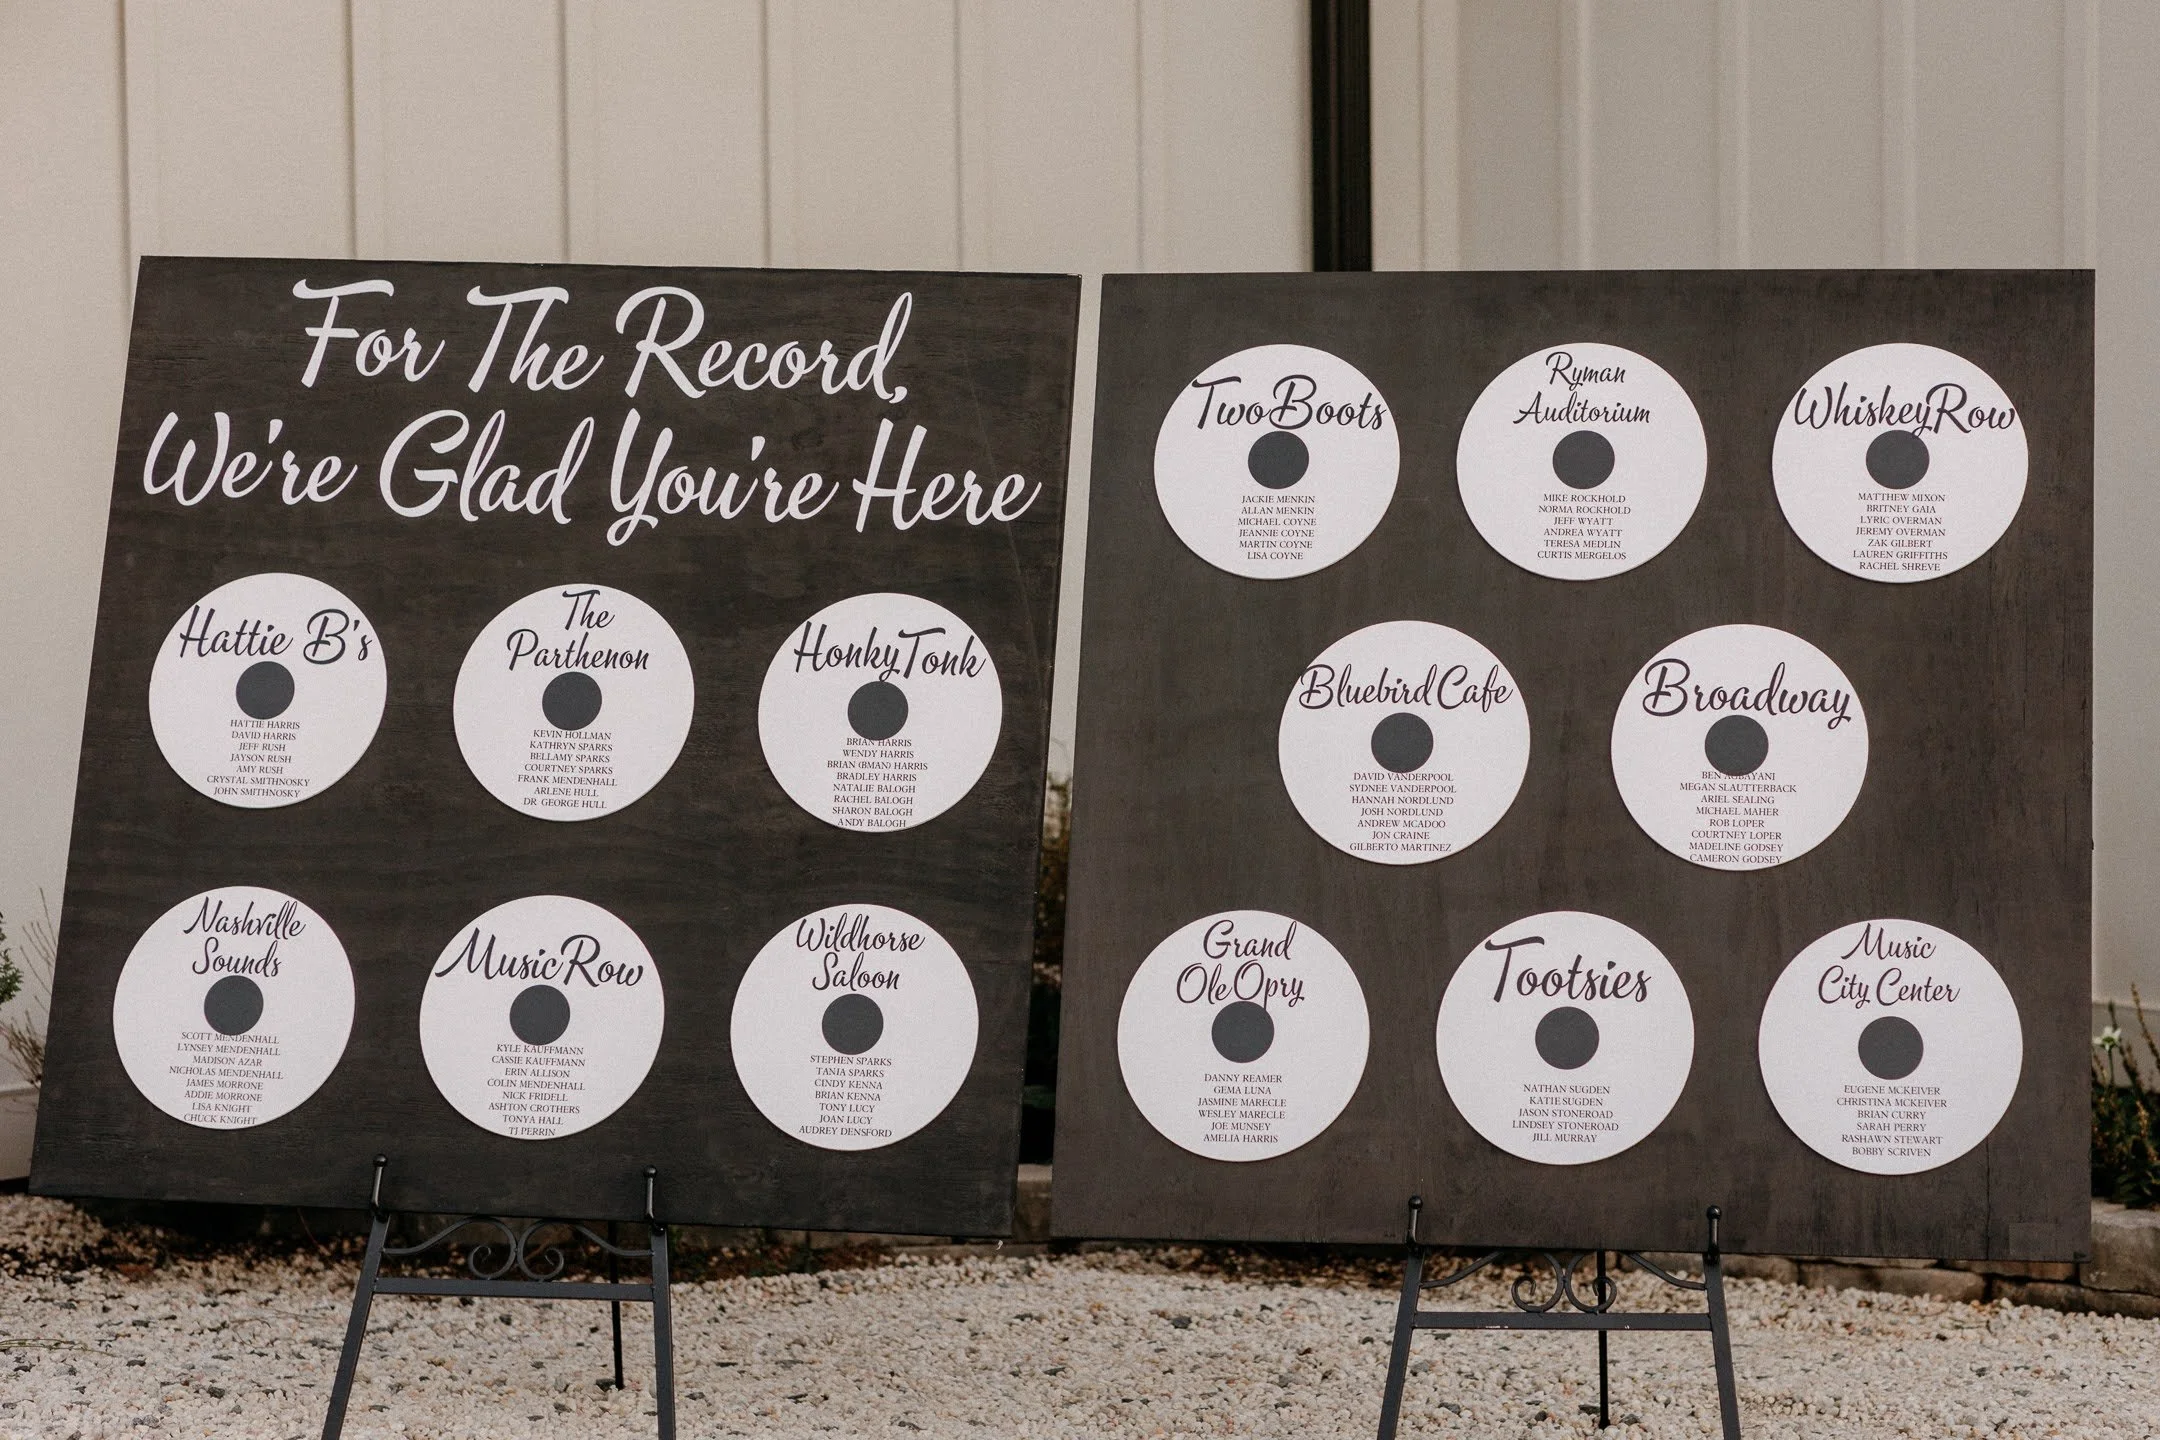 For The Record,
We're Glad You're Here
Hattie B's
HATTIE HARRIS
DAVID HARRIS
JEFF RUSH
JAYSON RUSH
AMY RUSH
CRYSTAL SMITHNOSKY
JOHN SMITHNOSKY
The
Parthenon
KEVIN HOLLMAN
KATHRYN SPARKS
BELLAMY SPARKS
COURTNEY SPARKS
FRANK MENDENHALL
ARLENE HULL
DR. GEORGE HULL
Honky Tonk
BRIAN HARRIS
WENDY HARRIS
BRIAN (BMAN) HARRIS
BRADLEY HARRIS
NATALIE BALOGH
RACHEL BALOGH
SHARON BALOGH
ANDY BALOGH
Nashville
Sounds
SCOTT MENDENHALL
LYNSEY MENDENHALL
MADISON AZAR
NICHOLAS MENDENHALL
JAMES MORRONE
ADDIE MORRONE
LISA KNIGHT
CHUCK KNIGHT
Music Row
KYLE KAUFFMANN
CASSIE KAUFFMANN
ERIN ALLISON
COLIN MENDENHALL
NICK FRIDELL
ASHTON CROTHERS
TONYA HALL
TJ PERRIN
Wildhorse
Saloon
STEPHEN SPARKS
TANIA SPARKS
CINDY KENNA
BRIAN KENNA
TONY LUCY
JOAN LUCY
AUDREY DENSFORD
Two Boots
JACKIE MENKIN
ALLAN MENKIN
MICHAEL COYNE
JEANNIE COYNE
MARTIN COYNE
LISA COYNE
Ryman
Auditorium
MIKE ROCKHOLD
NORMA ROCKHOLD
JEFF WYATT
ANDREA WYATT
TERESA MEDLIN
CURTIS MERGELOS
Whiskey Row
MATTHEW MIXON
BRITNEY GAIA
LYRIC OVERMAN
JEREMY OVERMAN
ZAK GILBERT
LAUREN GRIFFITHS
RACHEL SHREVE
Bluebird Cafe
DAVID VANDERPOOL
SYDNEE VANDERPOOL
HANNAH NORDLUND
JOSH NORDLUND
ANDREW MCADOO
JON CRAINE
GILBERTO MARTINEZ
Broadway
BEN AGBAYANI
MEGAN SLAUTTERBACK
ARIEL SEALING
MICHAEL MAHER
ROB LOPER
COURTNEY LOPER
MADELINE GODSEY
CAMERON GODSEY
Grand
Ole Opry
DANNY REAMER
GEMA LUNA
JASMINE MARECLE
WESLEY MARECLE
JOE MUNSEY
AMELIA HARRIS
Tootsies
NATHAN SUGDEN
KATIE SUGDEN
JASON STONEROAD
LINDSEY STONEROAD
JILL MURRAY
Music
City Center
EUGENE MCKEIVER
CHRISTINA MCKEIVER
BRIAN CURRY
SARAH PERRY
RASHAWN STEWART
BOBBY SCRIVEN